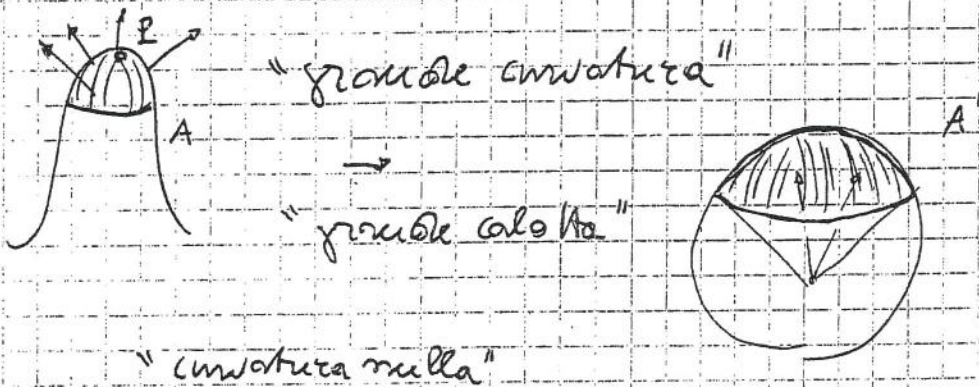 P
"grande curvatura"
A
A
→
"grande calotta"
"curvatura nulla"